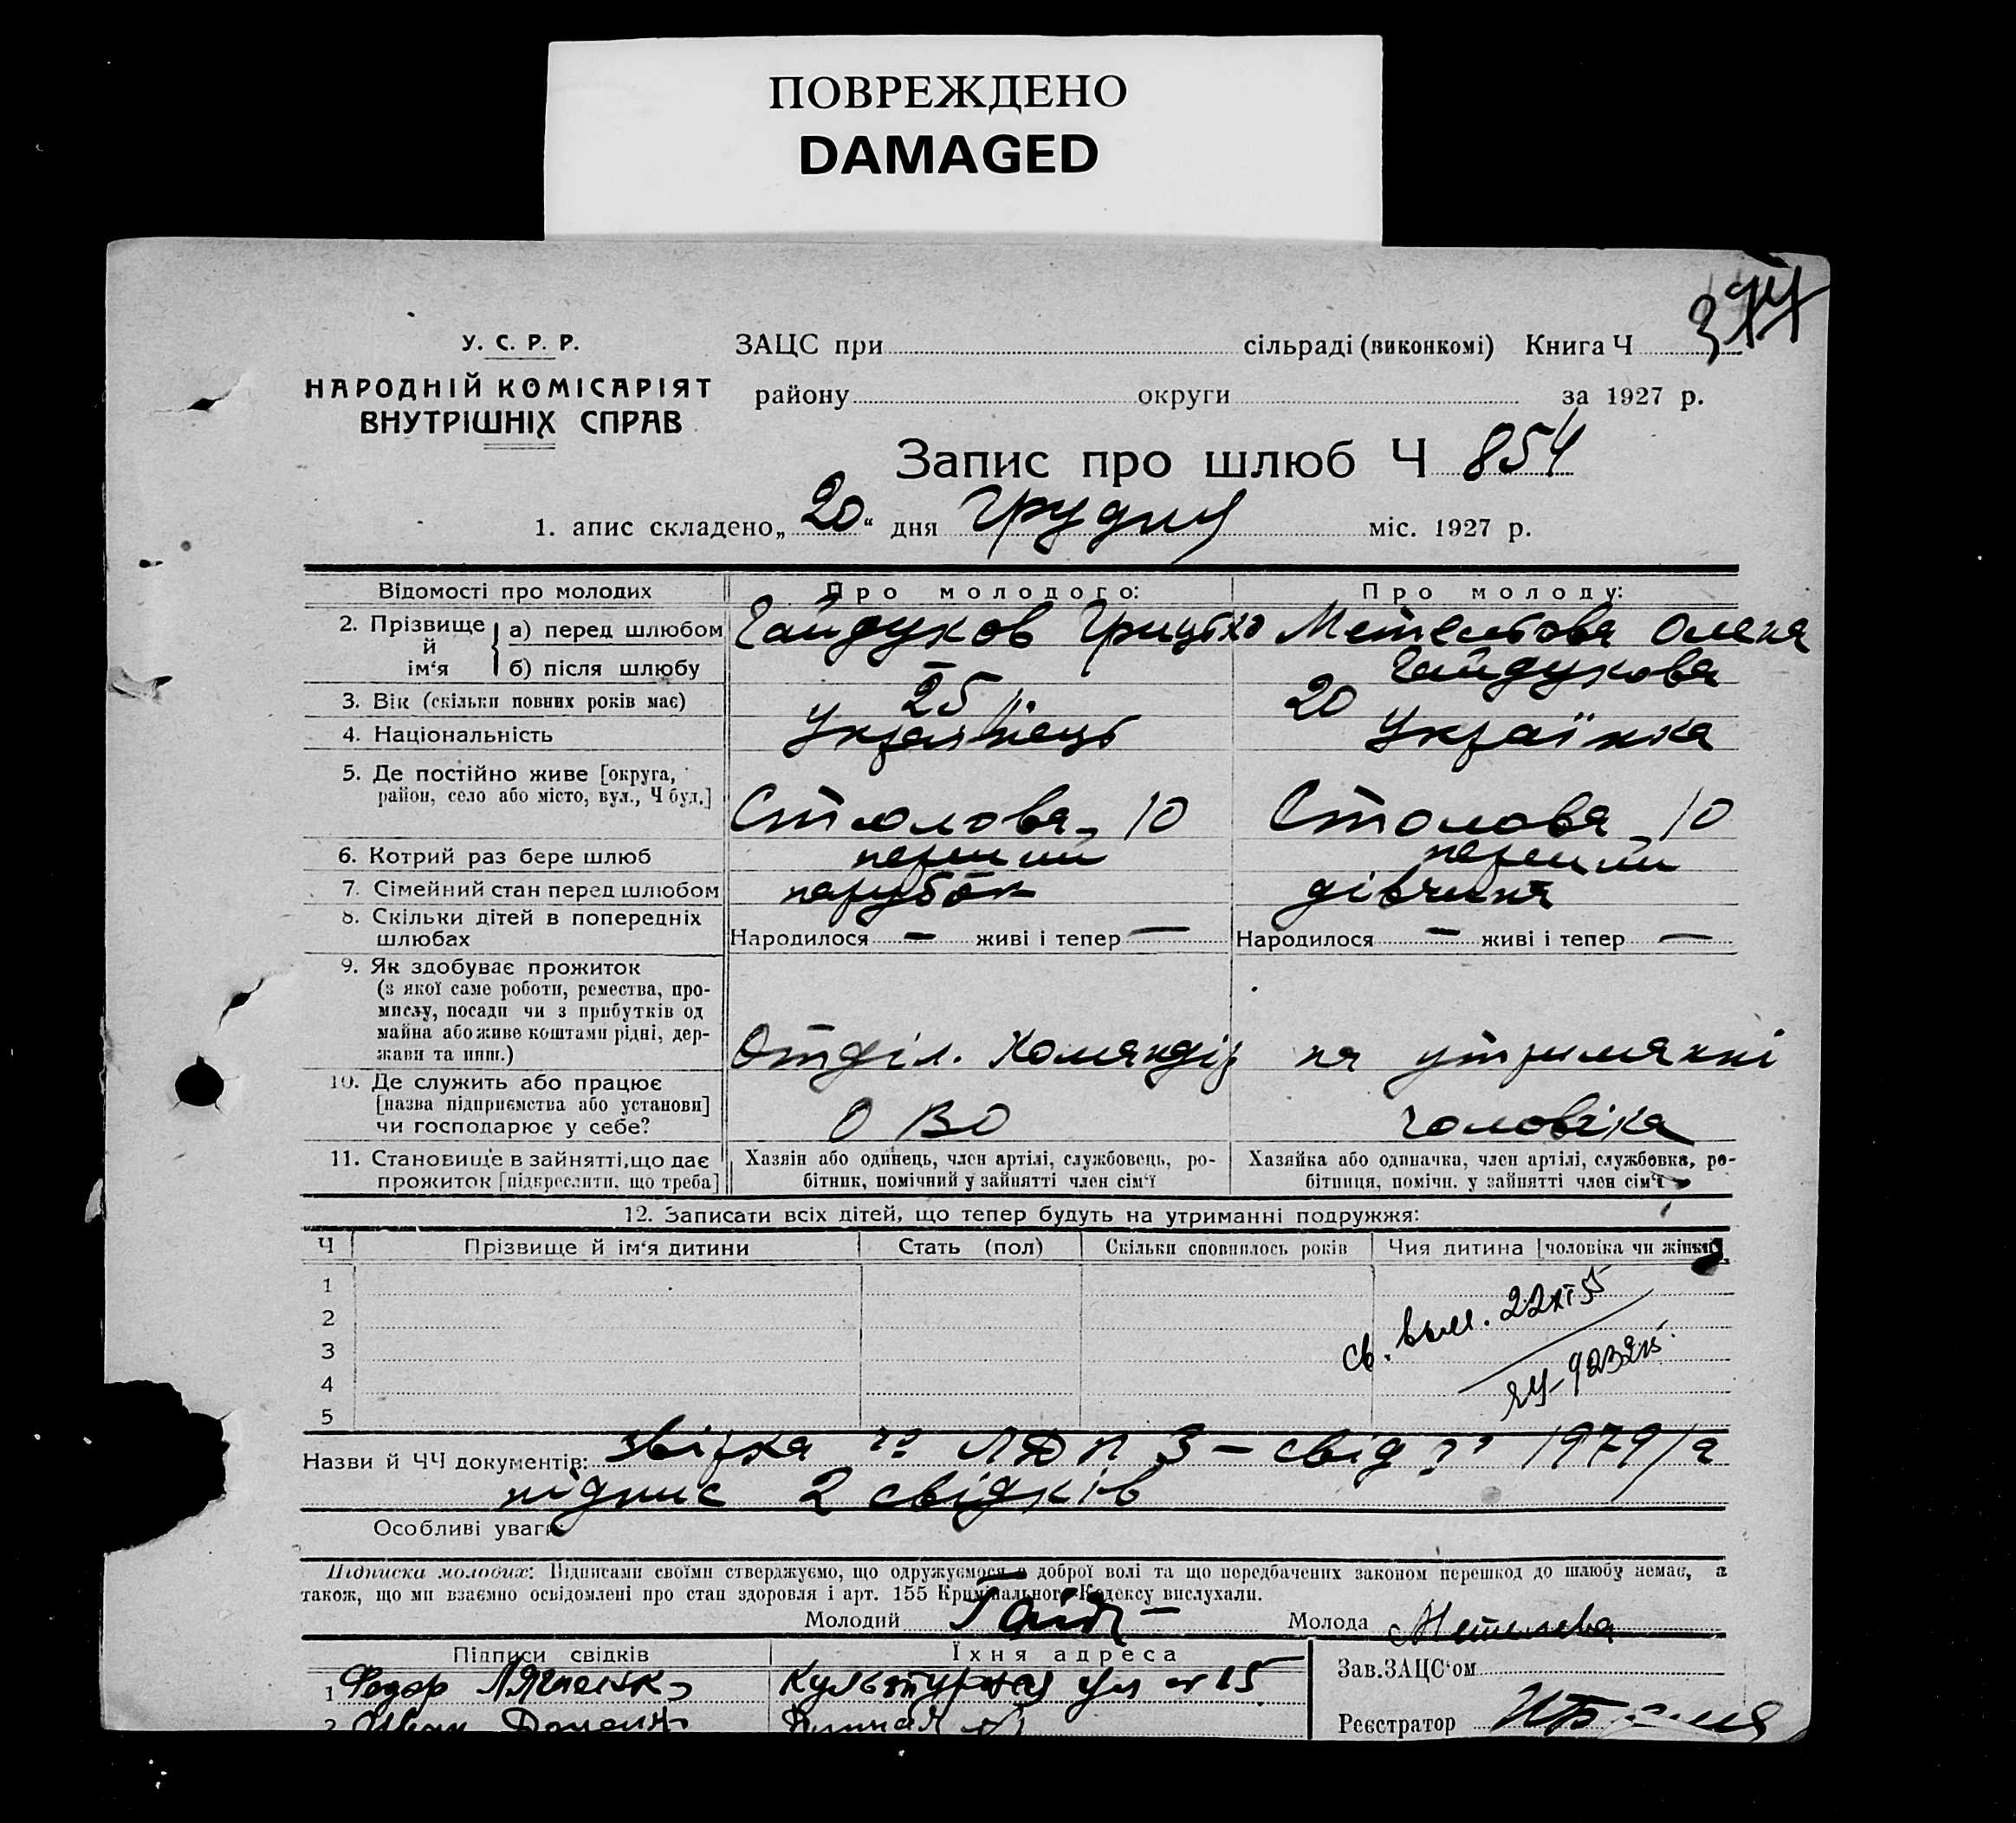 ПОВРЕЖДЕНО
DAMAGED
У. С. Р. Р.
НАРОДНІЙ КОМІСАРІЯТ
ВНУТРІШНІХ СПРАВ
ЗАЦС при сільраді (виконкомі) Книга Ч
району округи за 1927 р.
Запис про шлюб Ч 854
1. апис складено „20“ дня Грудня міс. 1927 р.
Відомості про молодих Про молодого: Про молоду:
2. Прізвище й ім‘я а) перед шлюбом Гайдуков Грицько Метельова Олена
б) після шлюбу — Гайдукова
3. Вік (скільки повних років має) 25 р. 20
4. Національність Українець Українка
5. Де постійно живе [округа,
район, село або місто, вул., Ч буд.] Столова, 10 Столова, 10
6. Котрий раз бере шлюб перший перший
7. Сімейний стан перед шлюбом парубок дівчина
8. Скільки дітей в попередніх
шлюбах Народилося — живі і тепер — Народилося — живі і тепер —
9. Як здобуває прожиток
(з якої саме роботи, ремества, про-
мислу, посади чи з прибутків од
майна або живе коштами рідні, дер-
жави та инш.) Отділ. Командір на утриманні
10. Де служить або працює
[назва підприємства або установи]
чи господарює у себе? О ВО чоловіка
11. Становище в зайнятті, що дає
прожиток [підкреслити, що треба]
Хазяїн або одинець, член артілі, службовець, ро-
бітник, помічний у зайнятті член сім‘ї
Хазяйка або одиначка, член артілі, службовка, ро-
бітниця, помічн. у зайнятті член сім‘ї
12. Записати всіх дітей, що тепер будуть на утриманні подружжя:
Ч Прізвище й ім‘я дитини Стать (пол) Скільки сповнилось років Чия дитина [чоловіка чи жінки]
1
2
3
4
5
св. выл. 22 XI 55
Назви й ЧЧ документів: звірка ЛДП 3 — свід 1979/а
підпис 2 свідків
Особливі уваги
Підписка молодих: Підписами своїми стверджуємо, що одружуємося з доброї волі та що передбачених законом перешкод до шлюбу немає, а
також, що ми взаємно освідомлені про стан здоровля і арт. 155 Кримінального Кодексу вислухали.
Молодий Гайд Молода Метелева
Підписи свідків Їхня адреса
Зав. ЗАЦС‘ом
1 Федор Культурная ул 15
2
Реєстратор